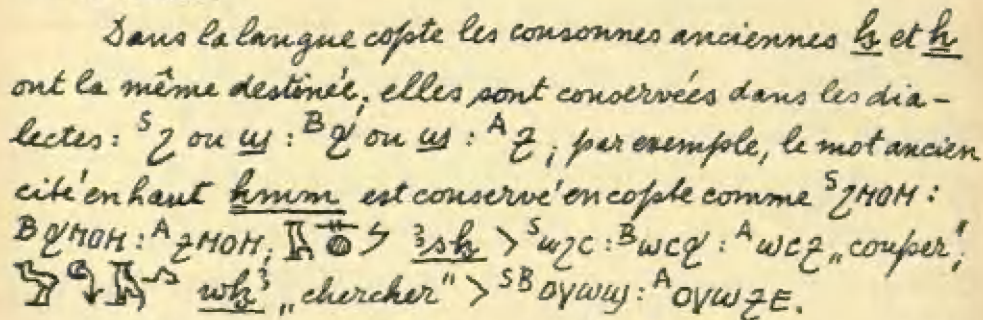 Dans la langue copte les consonnes anciennes ẖ et ḫ
ont la même destinée, elles sont conservées dans les dia-
lectes: ˢϩ ou ϣ : ᴮϧ ou ϣ : ᴬⳉ; par exemple, le mot ancien
cité en haut ẖmm est conservé en copte comme ˢϩⲙⲟⲙ :
ᴮϧⲙⲟⲙ : ᴬⳉⲙⲟⲙ; ꜣsḫ > ˢⲱϩⲥ : ᴮⲱⲥϧ : ᴬⲱⲥⳉ „couper";
wḫꜣ „chercher" > ˢᴮⲟⲩⲱϣ : ᴬⲟⲩⲱⳉⲉ.